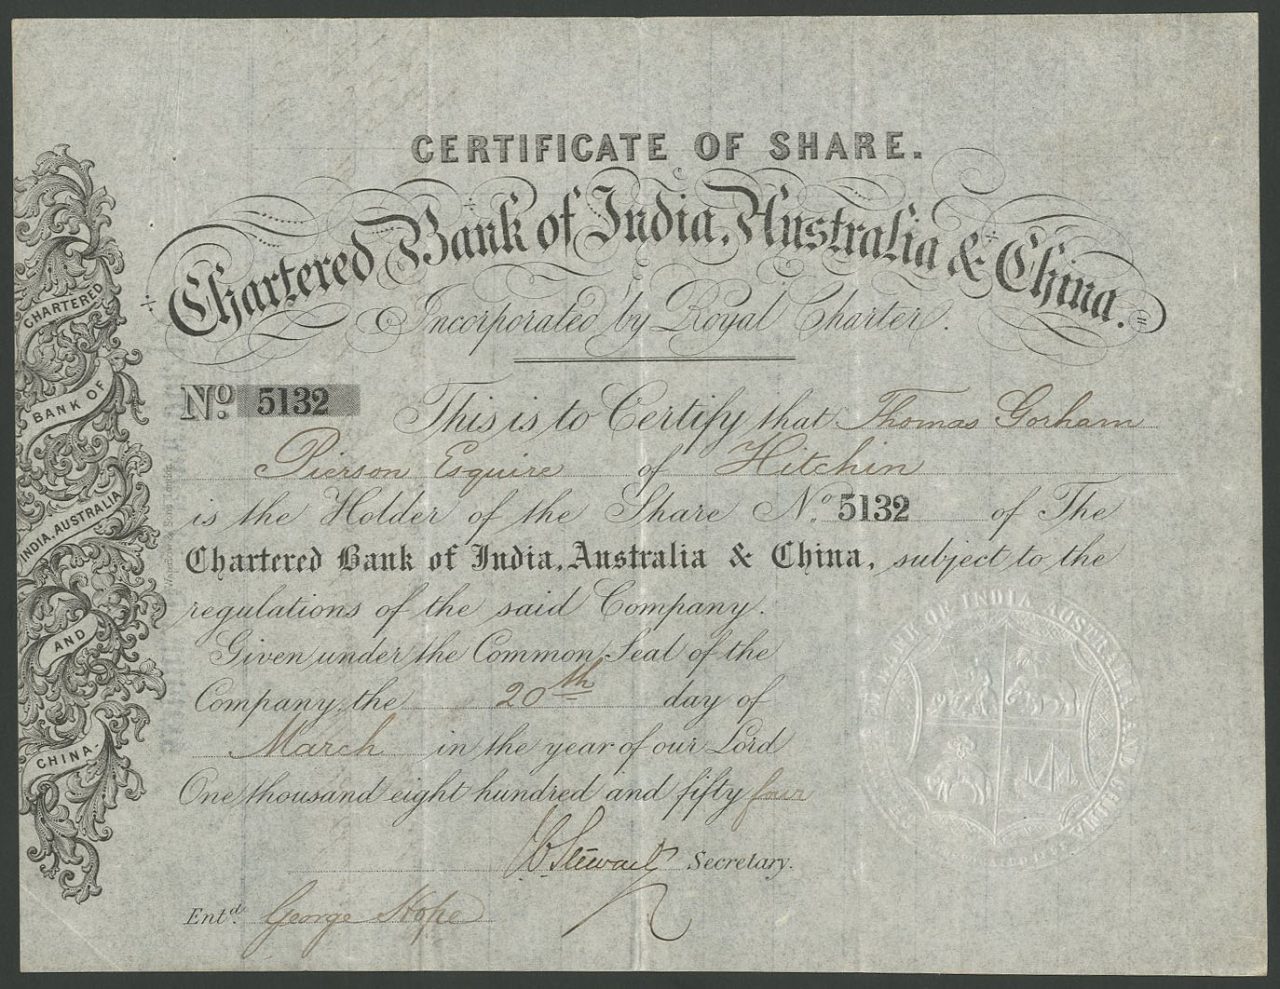 CERTIFICATE OF SHARE.
Chartered Bank of India, Australia & China.
Incorporated by Royal Charter.
No. 5132
This is to Certify that Thomas Gorham
Pierson Esquire of Hitchin
is the Holder of the Share No. 5132 of The
Chartered Bank of India, Australia & China, subject to the
regulations of the said Company.
Given under the Common Seal of the
Company, the 20th day of
March in the year of our Lord
One thousand eight hundred and fifty four
Stewart Secretary.
Entd. George Hope
CHARTERED
BANK OF
INDIA, AUSTRALIA
AND
CHINA.
BANK OF INDIA AUSTRALIA AND CHINA